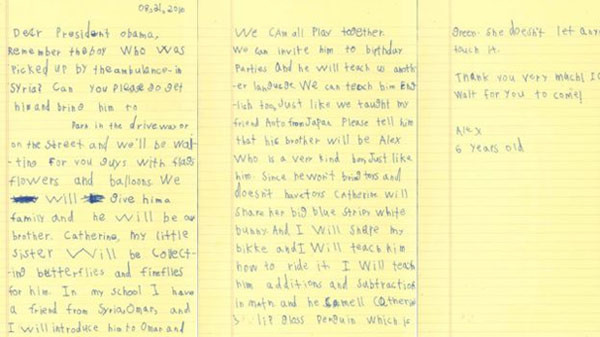 08.21, 2016
Dear President obama,
Remember the boy who was
Picked up by the ambulance in
Syria? Can you please go get
him and bring him to
Park in the driveway or
on the street and we'll be wai-
ting for you guys with flags
flowers and balloons. We
will give him a
family and he will be our
brother. Catherine, my little
sister will be collect-
ing butterflies and fireflies
for him. In my school I have
a friend from Syria, Omar, and
I will introduce him to Omar and
We can all play together.
We can invite him to birthday
parties and he will teach us anoth-
er language. We can teach him Eng-
lish too, Just like we taught my
friend Aoto from Japan. Please tell him
that his brother will be Alex
who is a very kind boy, Just like
him. Since he won't bring toys and
doesn't have toys Catherine will
share her big blue stripy white
bunny. And I will share my
bikke and I will teach him
how to ride it. I will teach
him additions and subtractions
in math and he smell Catherine's
lip gloss penguin which is
green. She doesn't let any
touch it.
Thank you very much! I c
wait for you to come!
Alex
6 years old